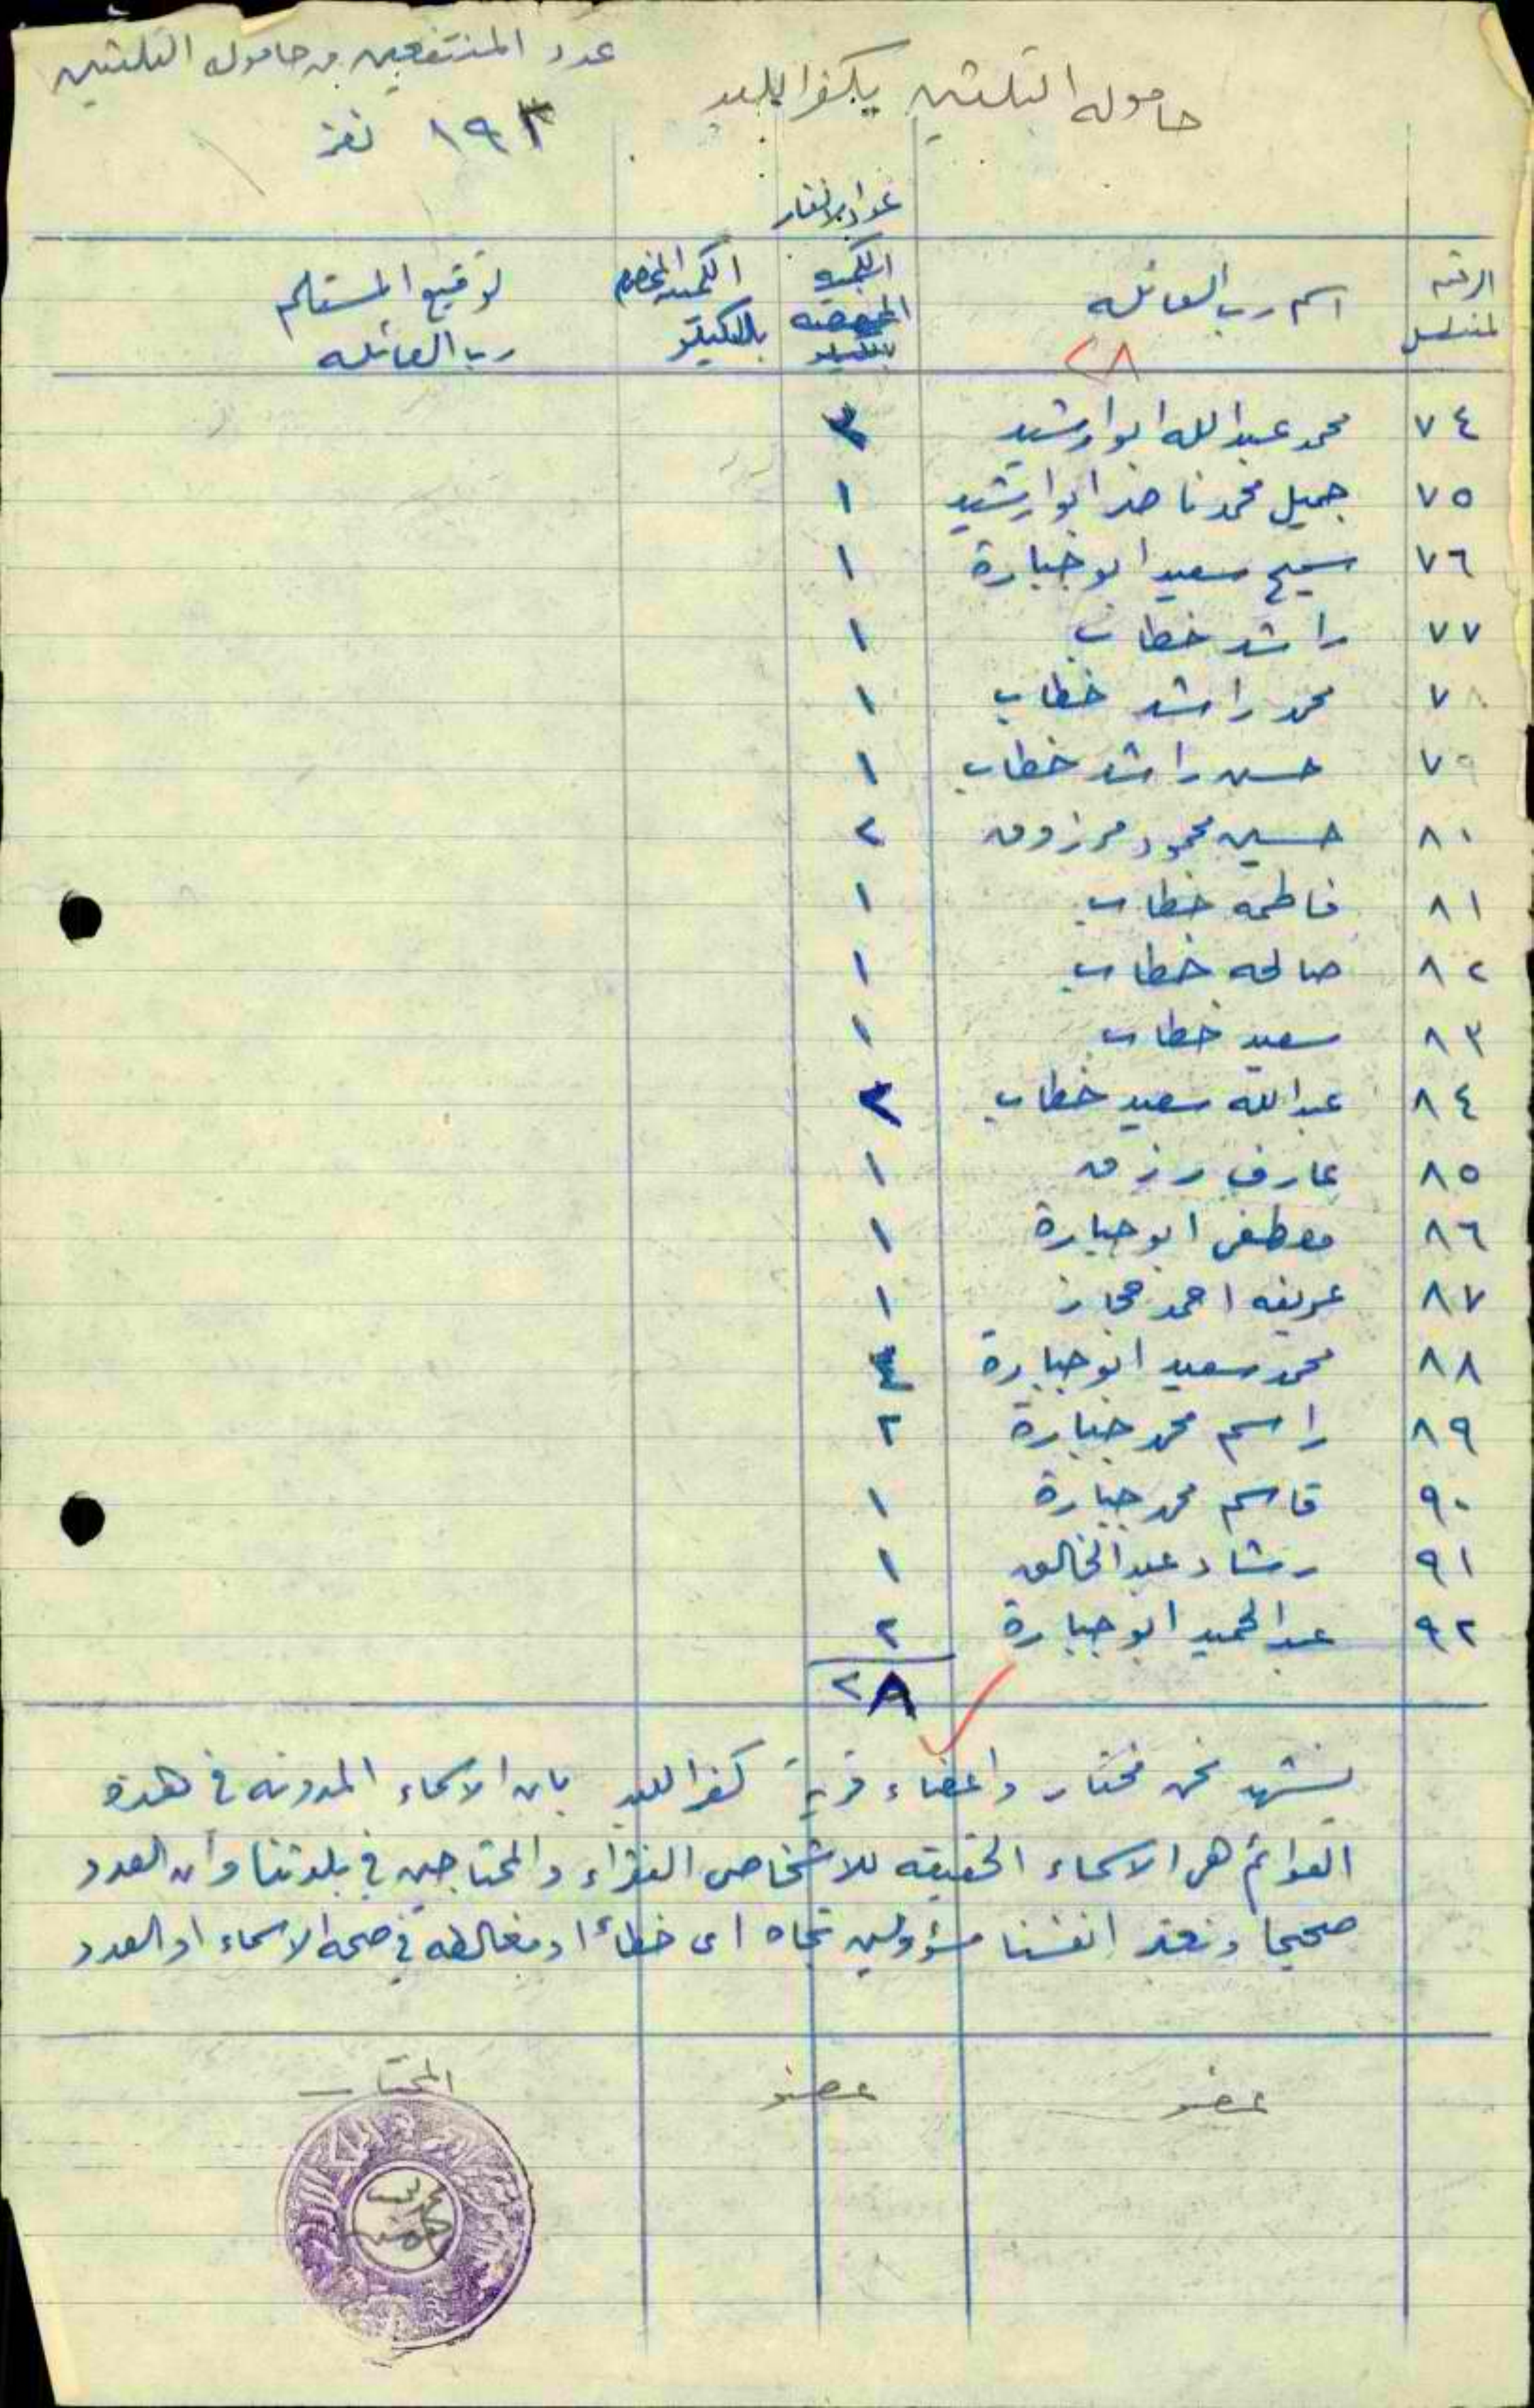 عدد المنتفعين من حاموله التلتين
١٩٣ نفر
حاموله التلتين بكفر اللبد
عدد الانفار
الرقم المتسلسل
اسم رب العائله
٢٨
الكميه المخصصه بالكيلو
الكميه بالكيلو
توقيع المستلم رب العائله
٧٤ محمد عبدالله ابو ارشيد ٣
٧٥ جميل محمد ناصر ابو ارشيد ١
٧٦ سميح سعيد ابو جبارة ١
٧٧ راشد خطاب ١
٧٨ محمد راشد خطاب ١
٧٩ حسن راشد خطاب ١
٨٠ حسين محمود مرزوق ٢
٨١ فاطمه خطاب ١
٨٢ صالحه خطاب ١
٨٣ سعيد خطاب ١
٨٤ عبدالله سعيد خطاب ٢
٨٥ عارف رزق ١
٨٦ مصطفى ابو جبارة ١
٨٧ عريفه احمد حجاز ١
٨٨ محمد سعيد ابو جبارة ٤
٨٩ راسم محمد جبارة ٢
٩٠ قاسم محمد جبارة ١
٩١ رشاد عبد الخالق ١
٩٢ عبد الحميد ابو جبارة ٢
٢٨
نشهد نحن مختار واعضاء قرية كفر اللبد بان الاسماء المدونه في هذه
القوائم هي الاسماء الحقيقه للاشخاص الفقراء والمحتاجين في بلدتنا وان العدد
صحيحا ونعتبر انفسنا مسؤولين تجاه اى خطأ او مغالطه في صحه الاسماء او العدد
عضو
عضو
المختار